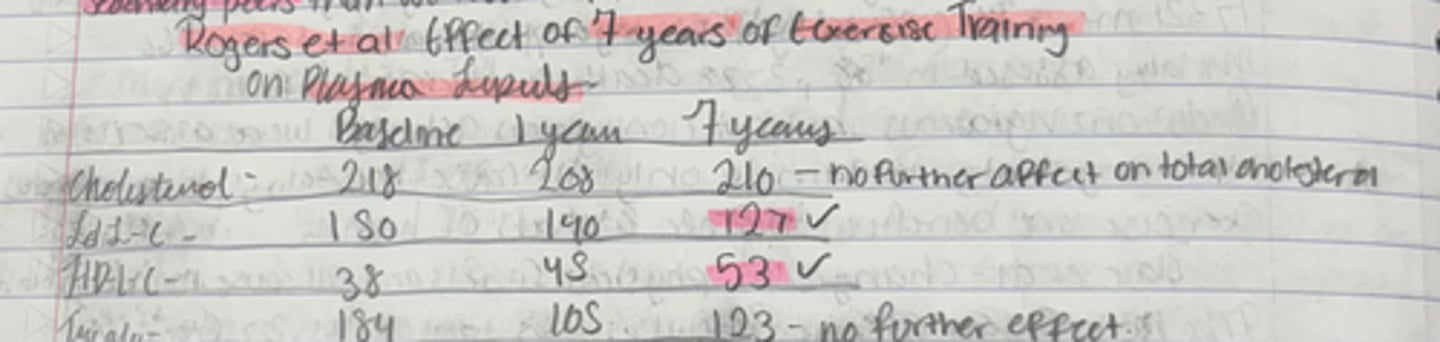 Rogers et al Effect of 7 years of Exercise Training
on Plasma Lipids
Baseline 1 year 7 years
Cholesterol - 218 208 210 - no further affect on total cholesterol
LdL-C - 150 140 127 ✓
HDL-C - 38 45 53 ✓
184 105 123 - no further effect.